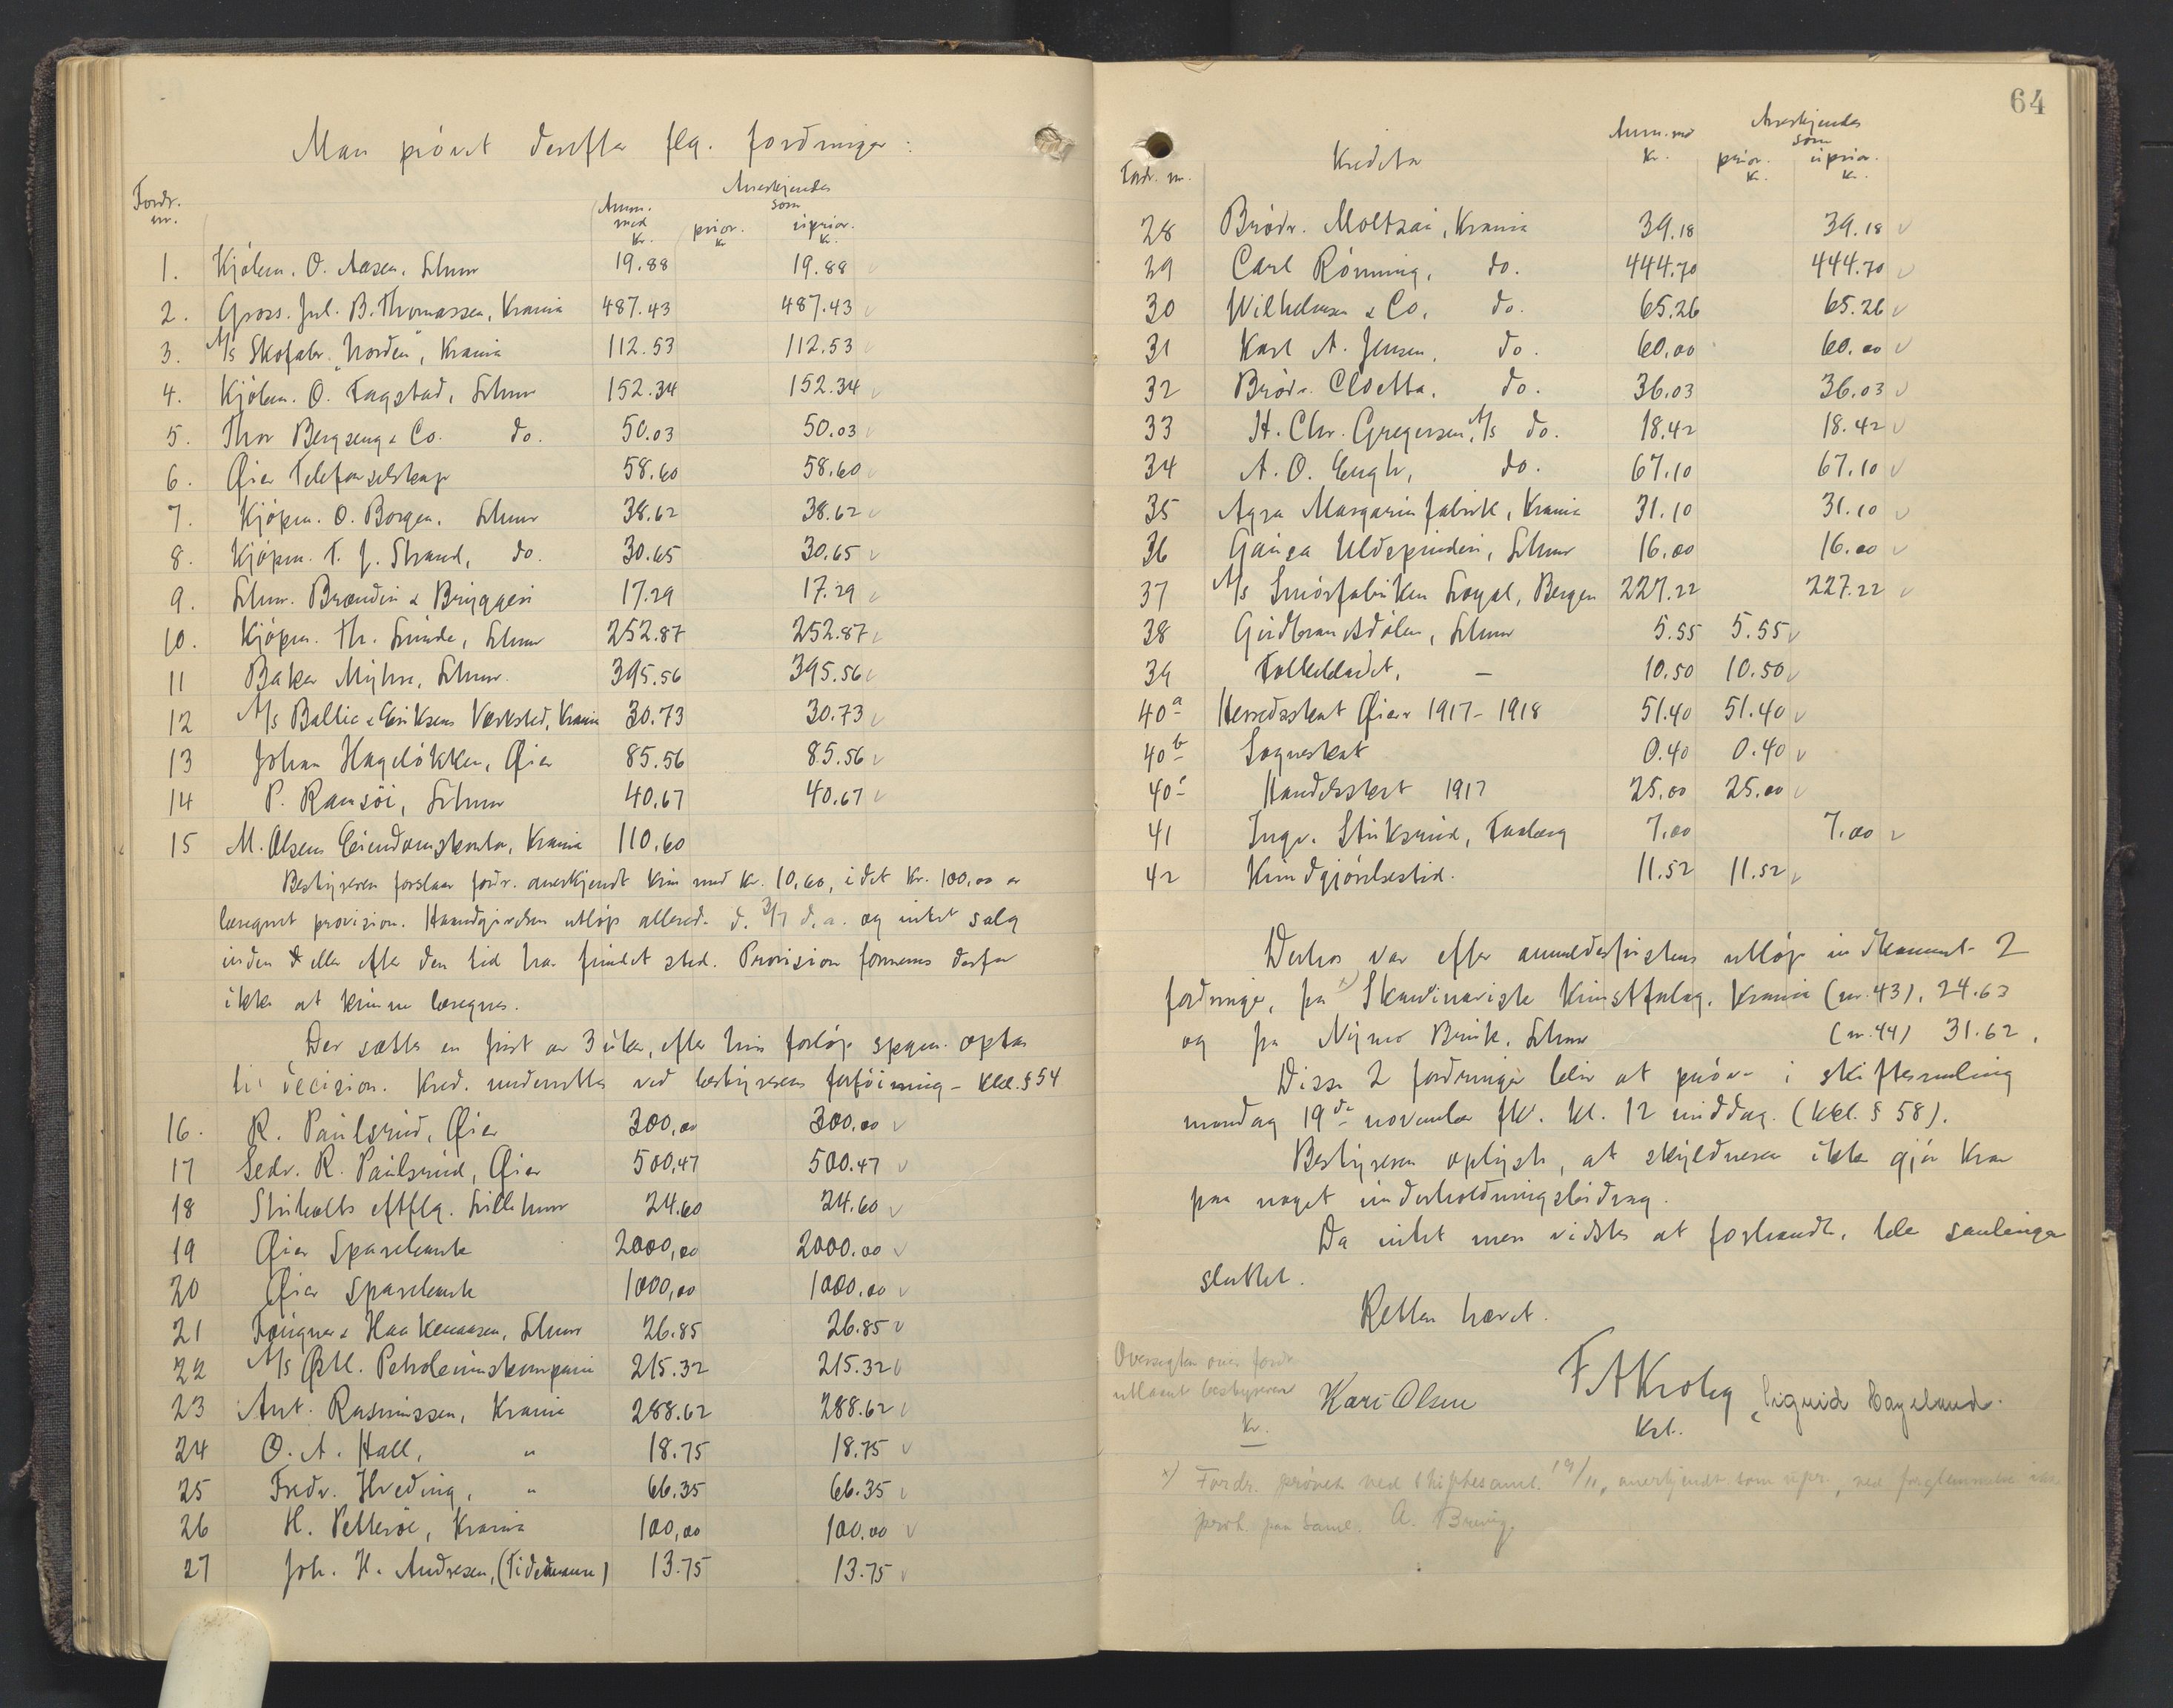 Man prövet derefter flg. fordringer:
Fordr. nr.
Anm. med Kr.
Anerkjendes som
prior. Kr.
uprior. Kr.
1. Kjöbm. O. Aasen, Lhmr 19.88 19.88
2. Gross. Jul. B. Thomassen, Krania 487.43 487.43
3. A/s Skofabr. "Norden", Krania 112.53 112.53
4. Kjöbm. O. Fagstad, Lhmr 152.34 152.34
5. Thor Bergseng & Co. do. 50.03 50.03
6. Øier Telefonselskap 58.60 58.60
7. Kjöpm. O. Borgen, Lhmr 38.62 38.62
8. Kjöpm. T. J. Strand, do. 30.65 30.65
9. Lhmr. Brænderi & Bryggeri 17.29 17.29
10. Kjöpm. Th. Lunde, Lhmr 252.87 252.87
11 Baker Myhre, Lhmr. 395.56 395.56
12 A/s Ballie & Eriksens Verksted, Krania 30.73 30.73
13 Johan Hagelökken, Øier 85.56 85.56
14 P. Ramsöi, Lhmr 40.67 40.67
15 M. Olsens Eiendomskontor, Krania 110.60
Bestyreren forslaar fordr. anerkjendt kun med kr. 10,60, idet kr. 100,00 er
beregnet provision. Haandgivelsen utlöp allered. d. 3/7 d.a. og intet salg
inden eller efter den tid har fundet sted. Provision formenes derfor
ikke at kunne beregnes.
Der sættes en frist av 3 uker, efter hvis forlöp spgm. optas
til decision. Kred. underrettes ved bestyrerens forföining - Kkl. § 54
16. R. Paulsrud, Øier 300,00 300,00
17 Sedv. R. Paulsrud, Øier 500,47 500.47
18 Stribolts eftflg. Lillehmr 24.60 24.60
19 Øier Sparebank 2000,00 2000.00
20 Øier Sparebank 1000,00 1000.00
21 Fougner & Haakenaasen, Lhmr 26.85 26.85
22 A/s Østl. Petroleumskompani 215.32 215.32
23 Ant. Rasmussen, Krania 288.62 288.62
24 O. A. Hall, " 18.75 18.75
25 Fredr. Hveding, " 66.35 66.35
26 H. Petteröe, Krania 100,00 100.00
27 Joh. H. Andresen, (Tidemann) 13.75 13.75
64
Fordr. nr.
Kreditor
Anm. med Kr.
Anerkjendes som
prior. Kr.
uprior. Kr.
28 Brödr. Moltzau, Krania 39.18 39.18
29 Carl Rönning, do. 444.70 444.70
30 Wilhelmsen & Co, do. 65.26 65.26
31 Karl A. Jensen, do. 60,00 60,00
32 Brödr. Cloetta, do. 36.03 36.03
33 H. Chr. Gregersen, A/s do. 18.42 18.42
34 A. O. Engh, do. 67.10 67.10
35 Agra Margarinfabrik, Krania 31.10 31.10
36 Gausa Uldspinderi, Lhmr 16.00 16.00
37 A/s Smörfabriken Loyal, Bergen 227.22 227.22
38 Gudbrandsdölen, Lhmr 5.55 5.55
39 Folkebladet, — 10.50 10.50
40a Herredsskat Øier 1917-1918 51.40 51.40
40b Sogneskat 0.40 0.40
40c Handelsskat 1917 25.00 25.00
41 Ingv. Stuksrud, Faaberg 7.00 7.00
42 Kundgjörelsestid. 11.52 11.52
Derhos var efter anmeldelsfristens utlöp indkommet 2
fordringer, fra x) Skandinavisk Kunstforlag, Krania (nr. 43), 24.63
og fra Nymo Bruk, Lhmr (nr. 44) 31.62.
Disse 2 fordringer blir at pröve i skiftesamling
mandag 19de november fk. kl. 12 middag. (Kkl. § 58).
Bestyreren oplyste, at skyldneren ikke gjör krav
paa noget underholdningsbidrag.
Da intet mere vidstes at forhandle, blev samlingen
sluttet.
Retten hævet.
Oversigten over fordr.
utlaant bestyreren
Kr.
Kari Olsen
F A Krohg
Kst.
Sigurd Hageland.
x) Fordr. prövet ved skiftesaml. 19/11, anerkjendt som upr., ved forglemmelse ikke
prot. paa saml. A. Breng.